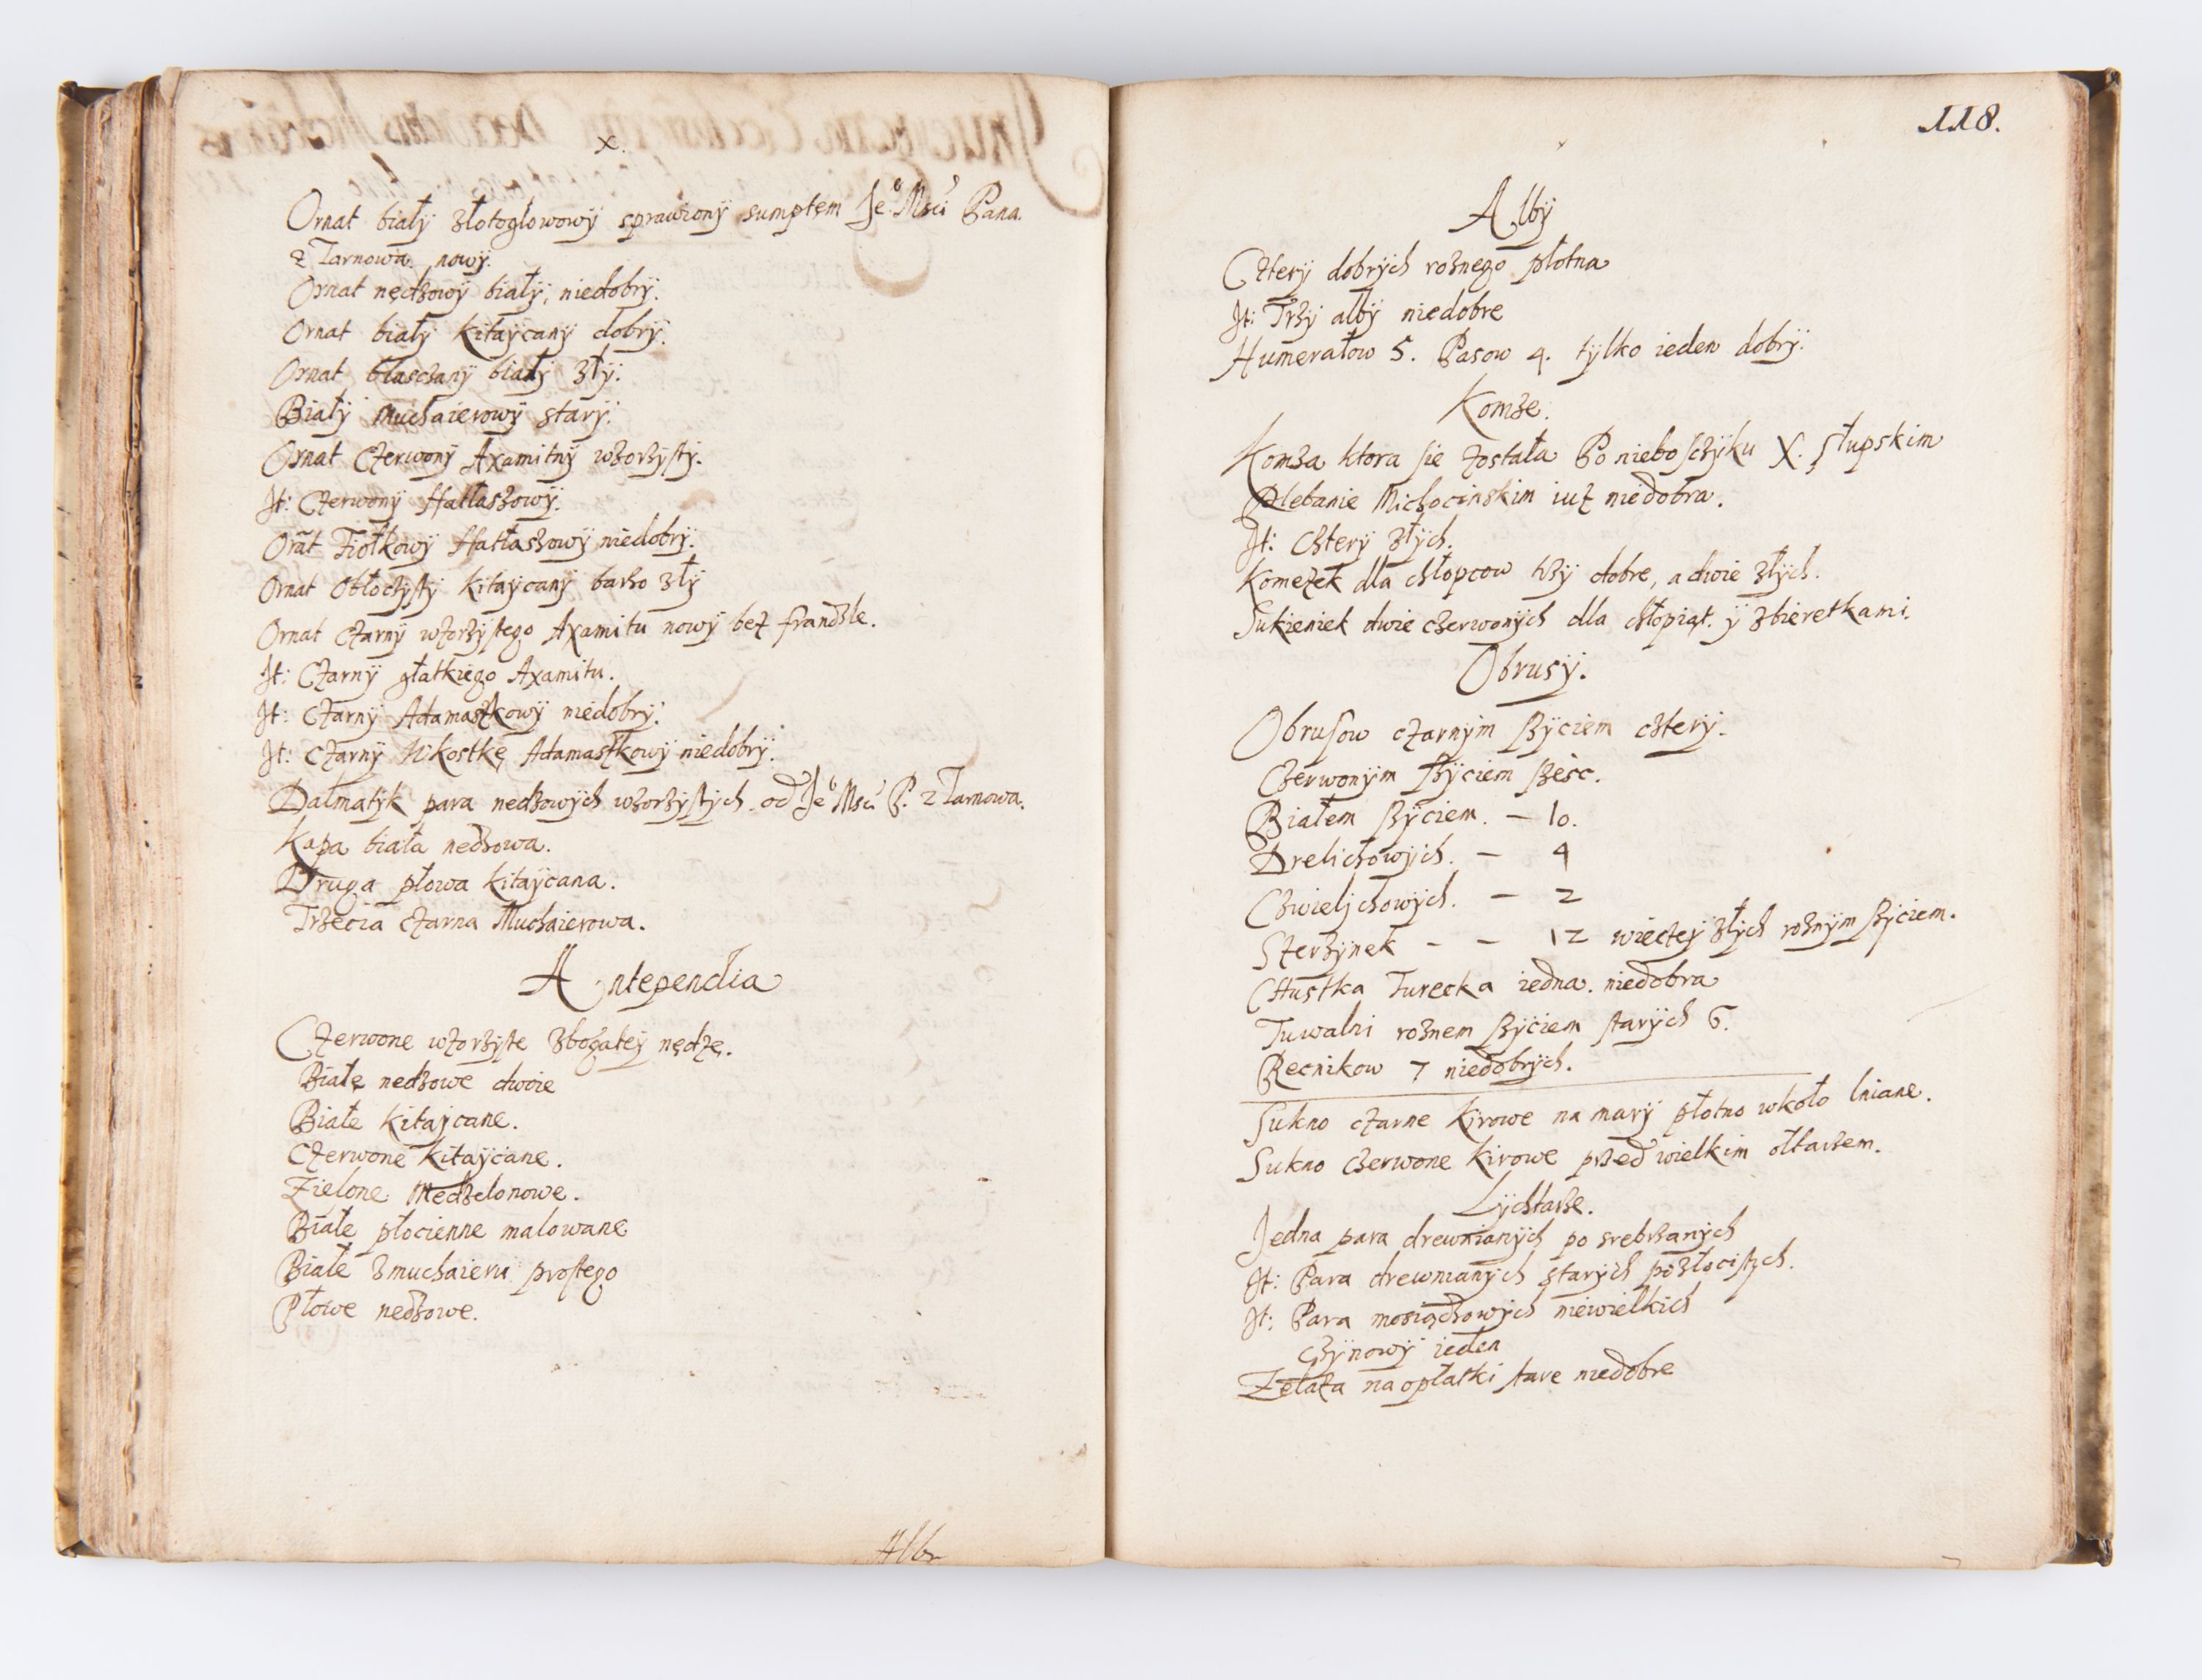 x.
Ornat biały złotogłowowÿ sprawionÿ sumptem Je⁰ Msci Pana
z Tarnowa. nowÿ.
Ornat nędzowÿ białÿ, niedobrÿ.
Ornat białÿ kitaÿcanÿ dobrÿ.
Ornat blasczanÿ białÿ złÿ.
Białÿ Muchaierowÿ starÿ.
Ornat Czerwonÿ Axamitnÿ wzorzÿstÿ.
It: Czerwonÿ Hatłaszowÿ.
Orãt Fiołkowÿ Hatłaszowÿ niedobrÿ.
Ornat Obłoczÿstÿ kitaÿcanÿ barzo złÿ
Ornat czarnÿ wzorzÿstego Axamitu nowÿ bez frandzle.
It: Czarnÿ głatkiego Axamitu.
It: Czarnÿ Adamaszkowÿ niedobrÿ.
It: czarnÿ W kostkę Adamaszkowÿ niedobrÿ.
Dalmatÿk para nedzowÿch wzorzÿstÿch od Je⁰ Msci P. z Tarnowa.
Kapa biała nedzowa.
Druga płowa kitaÿcana.
Trzecia czarna Muchaierowa.
Antependia
Czerwone wzorzÿste zbogateÿ nędzę.
Białe nedzowe dwoie
Białe kitaÿcane.
Czerwone kitaÿcane.
Zielone Medzelonowe.
Białe płocienne malowane
Białe zmuchaieru prostego
Płowe nedzowe.
118.
Albÿ
Czterÿ dobrÿch roznego płotna
It: Trzÿ albÿ niedobre
Humerałow 5. Pasow 4. tÿlko ieden dobrÿ.
Komze.
Komza ktora sie została Po nieboszczÿku X. Słupskim
Plebanie Michocinskim iuz niedobra.
It: Czterÿ złÿch.
Komezek dla chłopcow trzÿ dobre, a dwie złÿch.
Sukieniek dwie czerwonÿch dla chłopiąt. ÿ zbieretkami.
Obrusÿ.
Obrusow czarnÿm szÿciem czterÿ.
Czerwonÿm szÿciem szesc.
Białem szÿciem. – 10.
Drelichowÿch. – 4
Czwielichowÿch. – 2
Sterzÿnek – – 12 wieczeÿ złÿch roznÿm szÿciem.
Chustka Turecka iedna. niedobra
Tuwalni roznem szÿciem starÿch 6.
Recnikow 7 niedobrÿch.
Sukno czarne kirowe na marÿ płotno wkoło lniane.
Sukno Czerwone kirowe przed wielkim ołtarzem.
Lÿchtarze.
Jedna para drewnianÿch po srebrzanÿch
It: Para drewnianÿch starÿch pozłocistÿch.
It: Para mosiądzowÿch niewielkich
Czÿnowÿ ieden
Zelaza na opłatki stare niedobre